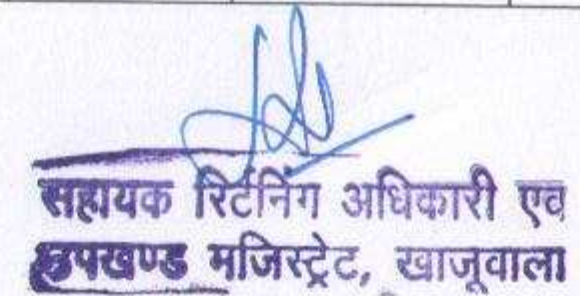 सहायक रिटर्निंग अधिकारी एव
उपखण्ड मजिस्ट्रेट, खाजूवाला